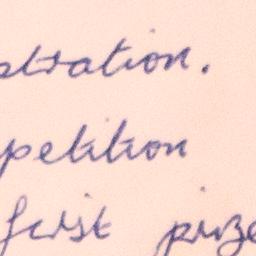 stration.
petition
first prize